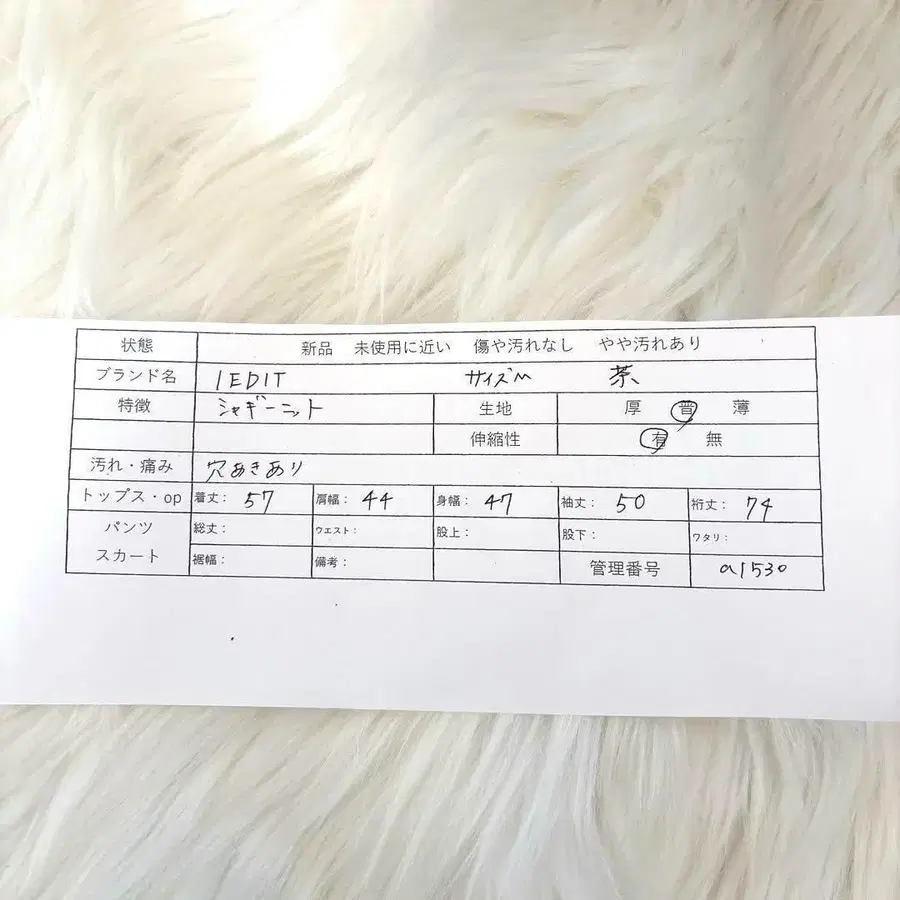 状態 新品 未使用に近い 傷や汚れなし やや汚れあり
ブランド名 IEDIT サイズM 茶
特徴 シャギーニット 生地 厚 普 薄
伸縮性 有 無
汚れ・痛み 穴あきあり
トップス・op 着丈: 57 肩幅: 44 身幅: 47 袖丈: 50 裄丈: 74
パンツ 総丈: ウエスト: 股上: 股下: ワタリ:
スカート 裾幅: 備考: 管理番号 a1530